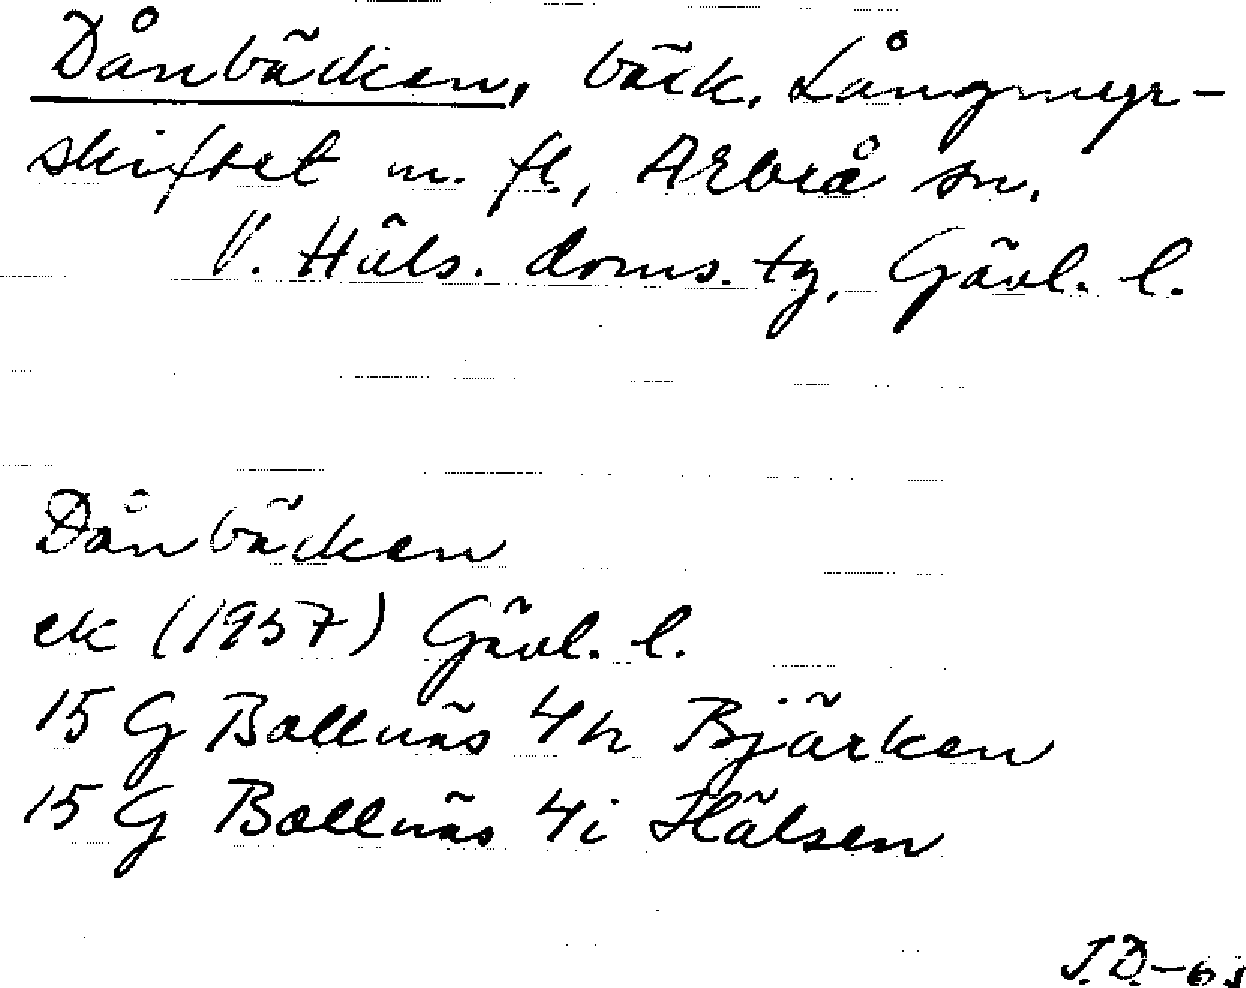 Dånbäcken, bäck. Långmyr-
skiftet m. fl., Arbrå sn.
V. Häls. doms. tg, Gävl. l.
Dånbäcken
ek (1957) Gävl. l.
15 G Bollnäs 4h Bjärken
15 G Bollnäs 4i Hälsen
J.D.-63